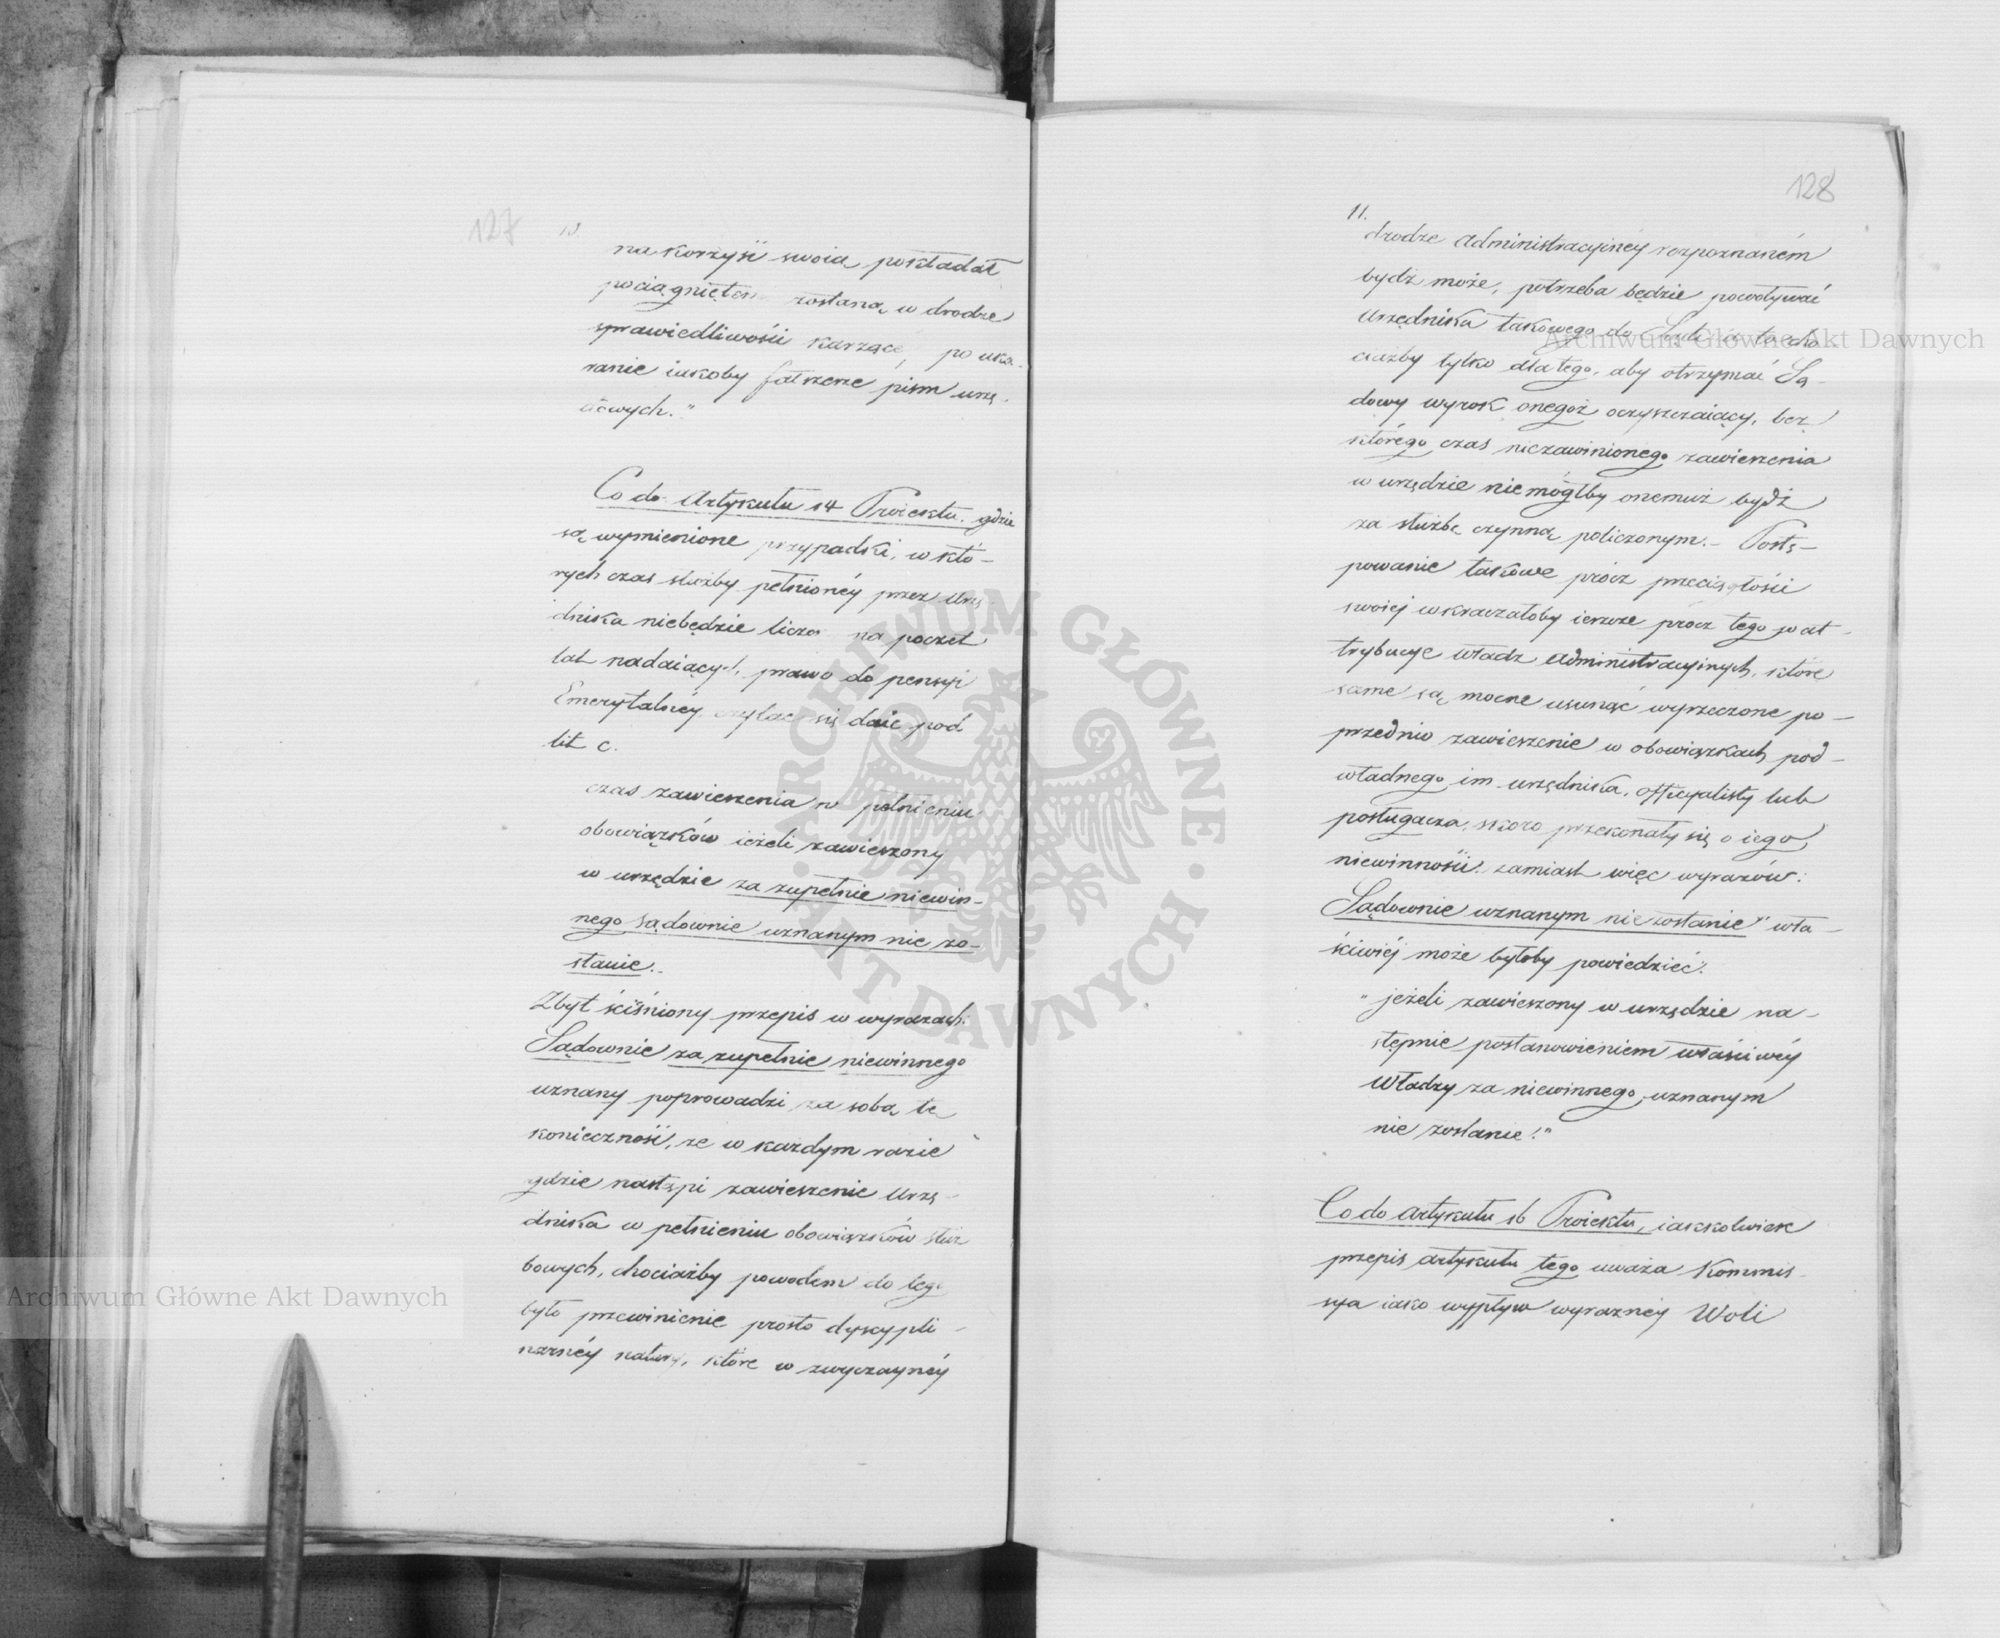 127
10.
na korzyść swoią pokładał
pociągniętem zostaną w drodze
sprawiedliwości karzące, po uka-
ranie iakoby fałszerze pism urzę-
dowych."
Co do Artykułu 14 Proiektu. gdzie
są wymienione przypadki, w któ-
rych czas służby pełnionéy przez Urzę
dnika niebędzie liczon na poczet
lat nadaiących prawo do pensyi
Emerytalnéy, czytać się daie pod
lit c.
czas zawieszenia w pełnieniu
obowiązków ieżeli zawieszony
w urzędzie za zupełnie niewin-
nego sądownie uznanym nie zo-
stanie.
Zbyt ściśniony przepis w wyrazach:
Sądownie za zupełnie niewinnego
uznany poprowadzi za sobą tę
konieczność, że w każdym razie
gdzie nastąpi zawieszenie Urzę-
dnika w pełnieniu obowiązków służ
bowych, chociażby powodem do tego
było przewinienie prosto dyscypli-
narnéy natury, które w zwyczaynéy
128
11.
drodze administracyinéy rozpoznaném
bydź może, potrzeba będzie powoływać
Urzędnika takowego do Sądu a to cho
ciażby tylko dla tego, aby otrzymać Są-
dowy wyrok onegoż oczyszczaiący, bez
którego czas niezawinionego zawieszenia
w urzędzie niemógłby onemuż bydź
za służbę czynną policzonym. – Postę-
powanie takowe prócz przeciągłości
swoiéj wkraczałoby ieszcze prócz tego w at-
trybucye Władz administracyinych, które
same są mocne usunąć wyrzeczone po-
przednio zawieszenie w obowiązkach pod-
władnego im urzędnika, officyalisty lub
posługacza, skoro przekonały się o iego
niewinności. zamiast więc wyrazów:
Sądownie uznanym nie zostanie" wła-
ściwiéj może byłoby powiedzieć:
„jeżeli zawieszony w urzędzie na-
stępnie postanowieniem właściwéy
Władzy za niewinnego uznanym
nie zostanie."
Co do artykułu 16 Proiektu, iakkolwiek
przepis artykułu tego uważa Kommis-
sya iako wypływ wyraznéy Woli
ARCHIWUM GŁÓWNE AKT DAWNYCH
Archiwum Główne Akt Dawnych
Archiwum Główne Akt Dawnych